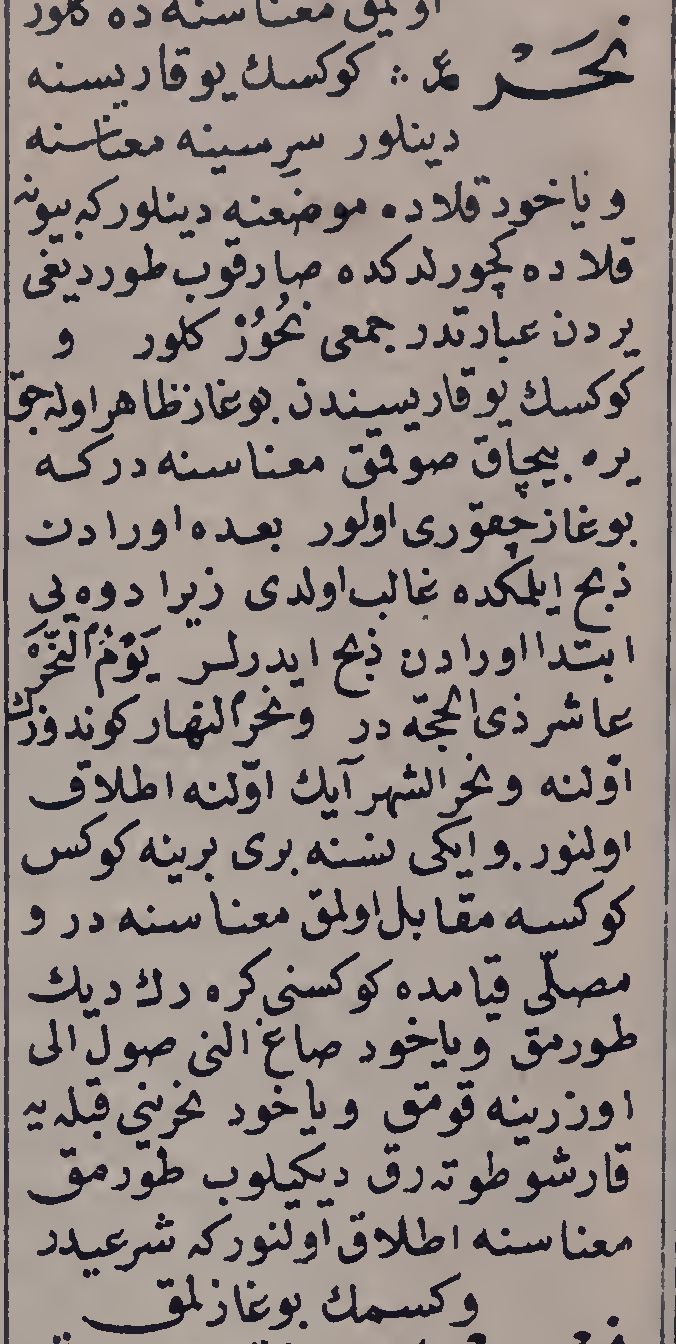 اولمق معناسنه ده كلور
نَحْر ع كوكسك يوقاريسنه
دينلور سرِسينه معناسنه
و ياخود قلاده موضعنه دينلوركه بيونه
قلاده كچورلدكده صارقوب طورديغى
يردن عبارتدر جمعى نُحُوْر كلور و
كوكسك يوقاريسيندن بوغاز ظاهر اوله جق
يره بيچاق صوقمق معناسنه دركه
بوغاز چقورى اولور بعده اورادن
ذبح ايلمكده غالب اولدى زيرا دوه يى
ابتدا اورادن ذبح ايدرلر يَوْمُ النَّحْر
عاشر ذى الحجّه در و نحر النهار كوندوزك
اوّلنه و نحر الشهر آيك اوّلنه اطلاق
اولنور و ايكى نسنه برى برينه كوكس
كوكسه مقابل اولمق معناسنه در و
مصلّى قيامده كوكسنى كره رك ديك
طورمق وياخود صاغ النى صول الى
اوزرينه قومق وياخود نحرينى قبله يه
قارشو طوته رق ديكيلوب طورمق
معناسنه اطلاق اولنوركه شرعيدر
وكسمك بوغازلمق